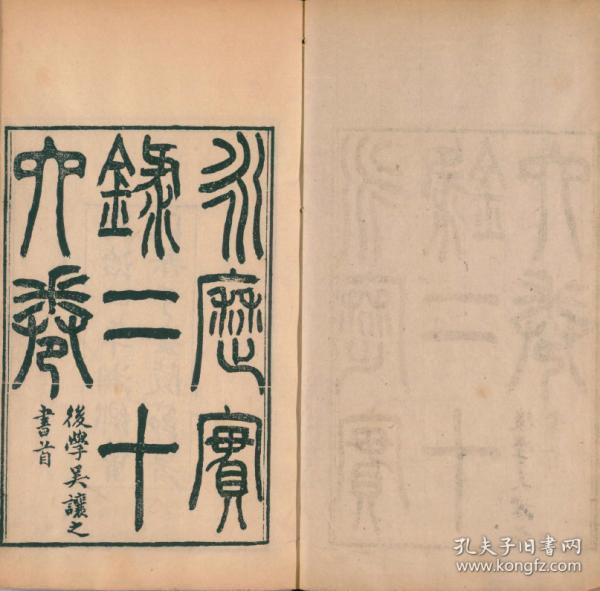 永歷實
錄二十
六卷
後學吳讓之
書首
孔夫子旧书网
www.kongfz.com